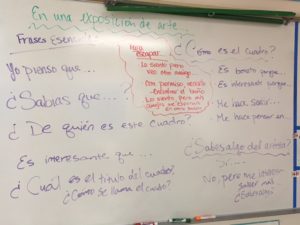 En una exposición de arte...
Frases Esenciales
Yo pienso que...
¿Sabías que...?
¿De quién es este cuadro?
Es interesante que...
¿Cuál es el título del cuadro?
¿Cómo se llama el
Para
escapar
Lo siento pero
veo otro amigo...
Con permiso necesito
el baño
Lo siento pero mis
amigos me esperan
¿Cómo es el cuadro?
Es bonito porque...
Es interesante porque...
Me hace sentir...
Me hace pensar en...
¿Sabes algo del artista?
Sí...
No, pero me
saber más
¿Sabes algo